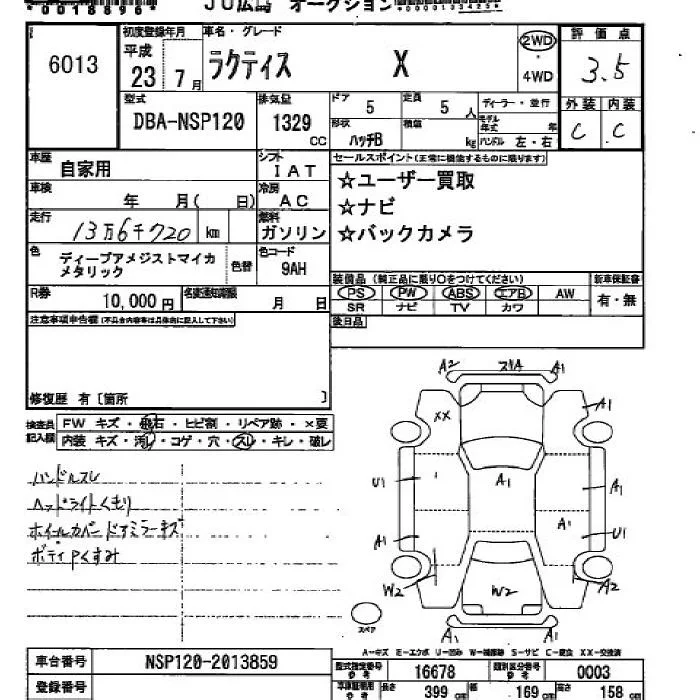 *0018896*
JU広島 オークション
6013
初度登録年月
平成 23 7月
車名・グレード
ラクティス X
2WD
・
4WD
評価点
3.5
外装 内装
C C
型式
DBA-NSP120
排気量
1329 CC
ドア 5
定員 5人
ディーラー・並行
形状 ハッチB
積載 kg
モデル年式 年
ハンドル 左・右
車歴 自家用
シフト IAT
セールスポイント(正常に機能するものに限ります)
☆ユーザー買取
☆ナビ
☆バックカメラ
車検 年 月( 日)
冷房 AC
走行 13万6千720 km
燃料 ガソリン
色 ディープアメジストマイカメタリック
色替
色コード 9AH
装備品(純正品に限り○をつけてください)
PS PW ABS エアB AW
SR ナビ TV カワ
新車保証書
有・無
R券 10,000円
名変通知期限 月 日
後日品
注意事項申告欄(不具合内容等は具体的に記入して下さい)
修復歴 有〔箇所 〕
検査員記入欄
FW キズ・飛石・ヒビ割・リペア跡・×要
内装 キズ・汚レ・コゲ・穴・スレ・キレ・破レ
ハンドルスレ
ヘッドライトくもり
ホイールカバー ドアミラーキズ
ボディPくすみ
A2 スリA A1
XX A1
U1 A1 A1
A1 A1 U1
W2 W2 A2
A1 A1
スペア
A−キズ E−エクボ U−凹み W−補修跡 S−サビ C−腐食 XX−交換済
車台番号 NSP120-2013859
型式指定番号 参考 16678
類別区分番号 参考 0003
登録番号
長さ 399 cm
幅 169 cm
高さ 158 cm